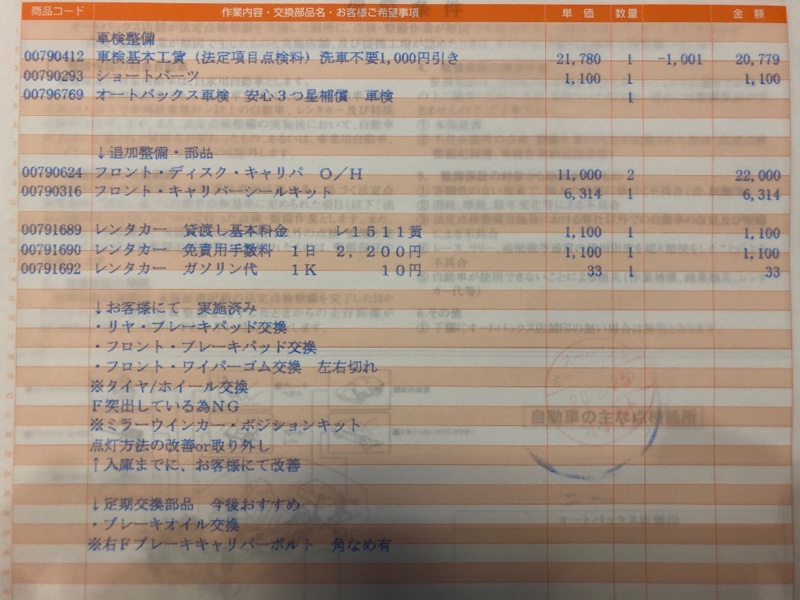 商品コード 作業内容・交換部品名・お客様ご希望事項 単価 数量 金額
車検整備
00790412 車検基本工賃（法定項目点検料）洗車不要1,000円引き 21,780 1 -1,001 20,779
00790293 ショートパーツ 1,100 1 1,100
00796769 オートバックス車検 安心３つ星補償 車検 1
↓追加整備・部品
00790624 フロント・ディスク・キャリパ Ｏ／Ｈ 11,000 2 22,000
00790316 フロント・キャリパーシールキット 6,314 1 6,314
00791689 レンタカー 貸渡し基本料金 レ１５１１黄 1,100 1 1,100
00791690 レンタカー 免責用手数料 １日 ２，２００円 1,100 1 1,100
00791692 レンタカー ガソリン代 １Ｋ １０円 33 1 33
↓お客様にて 実施済み
・リヤ・ブレーキパッド交換
・フロント・ブレーキパッド交換
・フロント・ワイパーゴム交換 左右切れ
※タイヤ/ホイール交換
Ｆ突出している為ＮＧ
※ミラーウインカー・ポジションキット
点灯方法の改善or取り外し
↑入庫までに、お客様にて改善
↓定期交換部品 今後おすすめ
・ブレーキオイル交換
※右Ｆブレーキキャリパーボルト 角なめ有
自動車の主な点検箇所